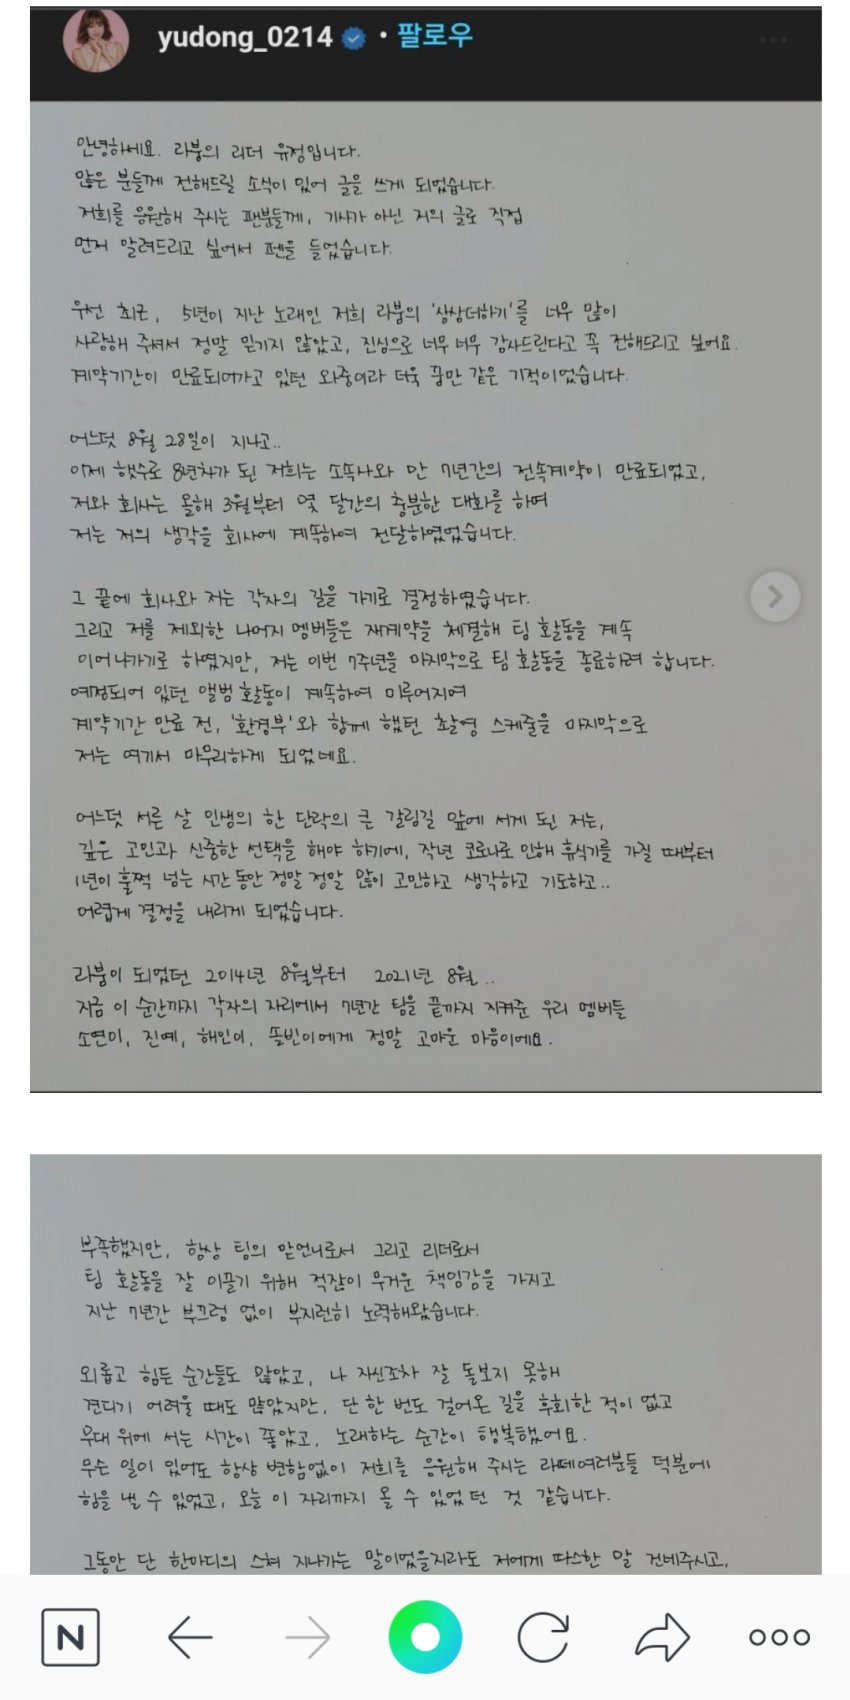 yudong_0214 • 팔로우
안녕하세요. 라붐의 리더 유정입니다.
많은 분들께 전해드릴 소식이 있어 글을 쓰게 되었습니다.
저희를 응원해 주시는 팬분들께, 기사가 아닌 저의 글로 직접
먼저 알려드리고 싶어서 펜을 들었습니다.
우선 최근, 5년이 지난 노래인 저희 라붐의 '상상더하기'를 너무 많이
사랑해 주셔서 정말 믿기지 않았고, 진심으로 너무 너무 감사드린다고 꼭 전해드리고 싶어요.
계약기간이 만료되어가고 있던 와중이라 더욱 꿈만 같은 기적이었습니다.
어느덧 8월 28일이 지나고..
이제 햇수로 8년차가 된 저희는 소속사와 만 7년간의 전속계약이 만료되었고,
저와 회사는 올해 3월부터 몇 달간의 충분한 대화를 하며
저는 저의 생각을 회사에 계속하여 전달하였었습니다.
그 끝에 회사와 저는 각자의 길을 가기로 결정하였습니다.
그리고 저를 제외한 나머지 멤버들은 재계약을 체결해 팀 활동을 계속
이어나가기로 하였지만, 저는 이번 7주년을 마지막으로 팀 활동을 종료하려 합니다.
예정되어 있던 앨범 활동이 계속하여 미루어지며
계약기간 만료 전, '환경부'와 함께 했던 촬영 스케줄을 마지막으로
저는 여기서 마무리하게 되었네요.
어느덧 서른 살 인생의 한 단락의 큰 갈림길 앞에 서게 된 저는,
깊은 고민과 신중한 선택을 해야 하기에, 작년 코로나로 인해 휴식기를 가질 때부터
1년이 훌쩍 넘는 시간 동안 정말 정말 많이 고민하고 생각하고 기도하고..
어렵게 결정을 내리게 되었습니다.
라붐이 되었던 2014년 8월부터 2021년 8월..
지금 이 순간까지 각자의 자리에서 7년간 팀을 끝까지 지켜준 우리 멤버들
소연이, 진예, 해인이, 솔빈이에게 정말 고마운 마음이에요.
부족했지만, 항상 팀의 맏언니로서 그리고 리더로서
팀 활동을 잘 이끌기 위해 적잖이 무거운 책임감을 가지고
지난 7년간 부끄럼 없이 부지런히 노력해왔습니다.
외롭고 힘든 순간들도 많았고, 나 자신조차 잘 돌보지 못해
견디기 어려울 때도 많았지만, 단 한 번도 걸어온 길을 후회한 적이 없고
무대 위에 서는 시간이 좋았고, 노래하는 순간이 행복했어요.
무슨 일이 있어도 항상 변함없이 저희를 응원해 주시는 라떼여러분들 덕분에
힘을 낼 수 있었고, 오늘 이 자리까지 올 수 있었던 것 같습니다.
그동안 단 한마디의 스쳐 지나가는 말이었을지라도 저에게 따스한 말 건네주시고,
N